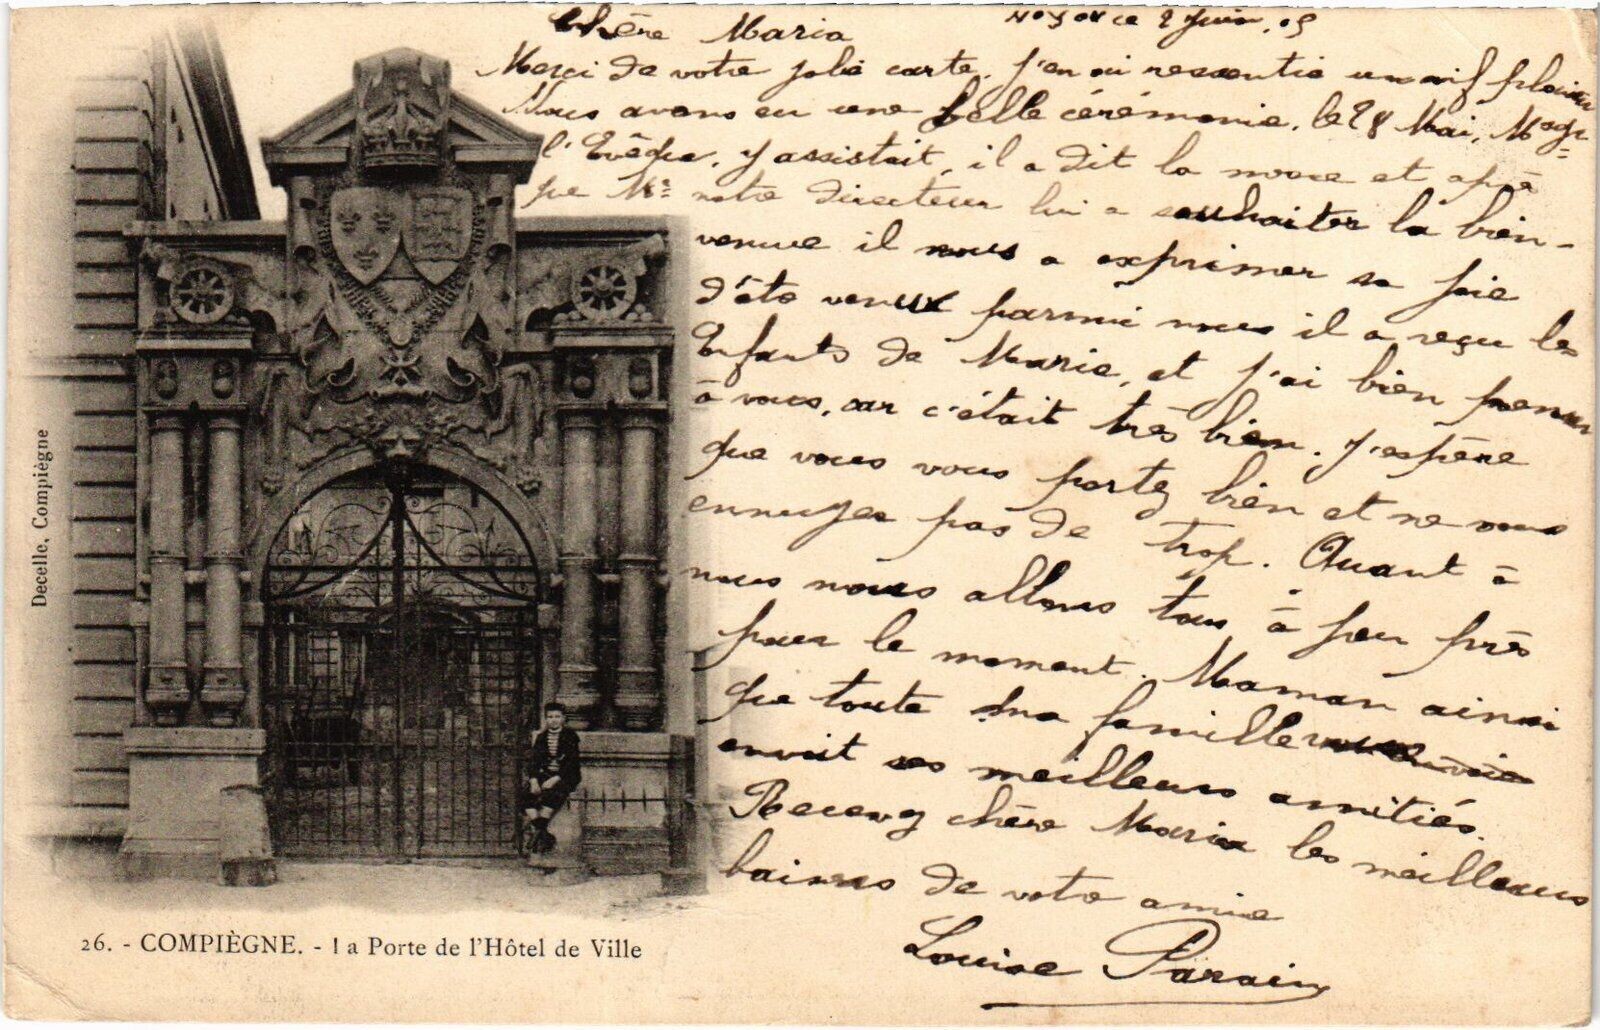 Noyon ce 2 Juin . 05
Chère Maria
Merci de votre jolie carte, j'en ai ressentie un vif plaisir
Nous avons eu une belle cérémonie, le 28 Mai, Mogr
l'Evêque, y assistait, il a dit la messe et après
que Mr notre directeur lui a souhaiter la bien-
venue il nous a exprimer sa joie
d'être venu parmi nous il a reçu les
Enfants de Marie, et j'ai bien penser
à vous, car c'était très bien. J'espère
que vous vous portez bien et ne vous
ennuyez pas de trop. Quant à
nous nous allons tous à peu près
pour le moment. Maman ainsi
que toute ma famille vous envoie
envoit ses meilleurs amitiés.
Recevez chère Maria les meilleurs
baisers de votre amie
Louise Parain
Decelle, Compiègne
26. - COMPIÈGNE. - La Porte de l'Hôtel de Ville